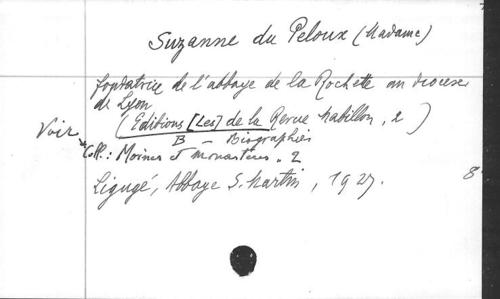 Suzanne du Peloux (Madame)
fondatrice de l'abbaye de la Rochette au diocèse
de Lyon
(Editions [Les] de la Revue Mabillon, 2)
Voir
B — Biographies
* Coll.: Moines et monastères. 2
Ligugé, Abbaye S. Martin, 1927.
8°